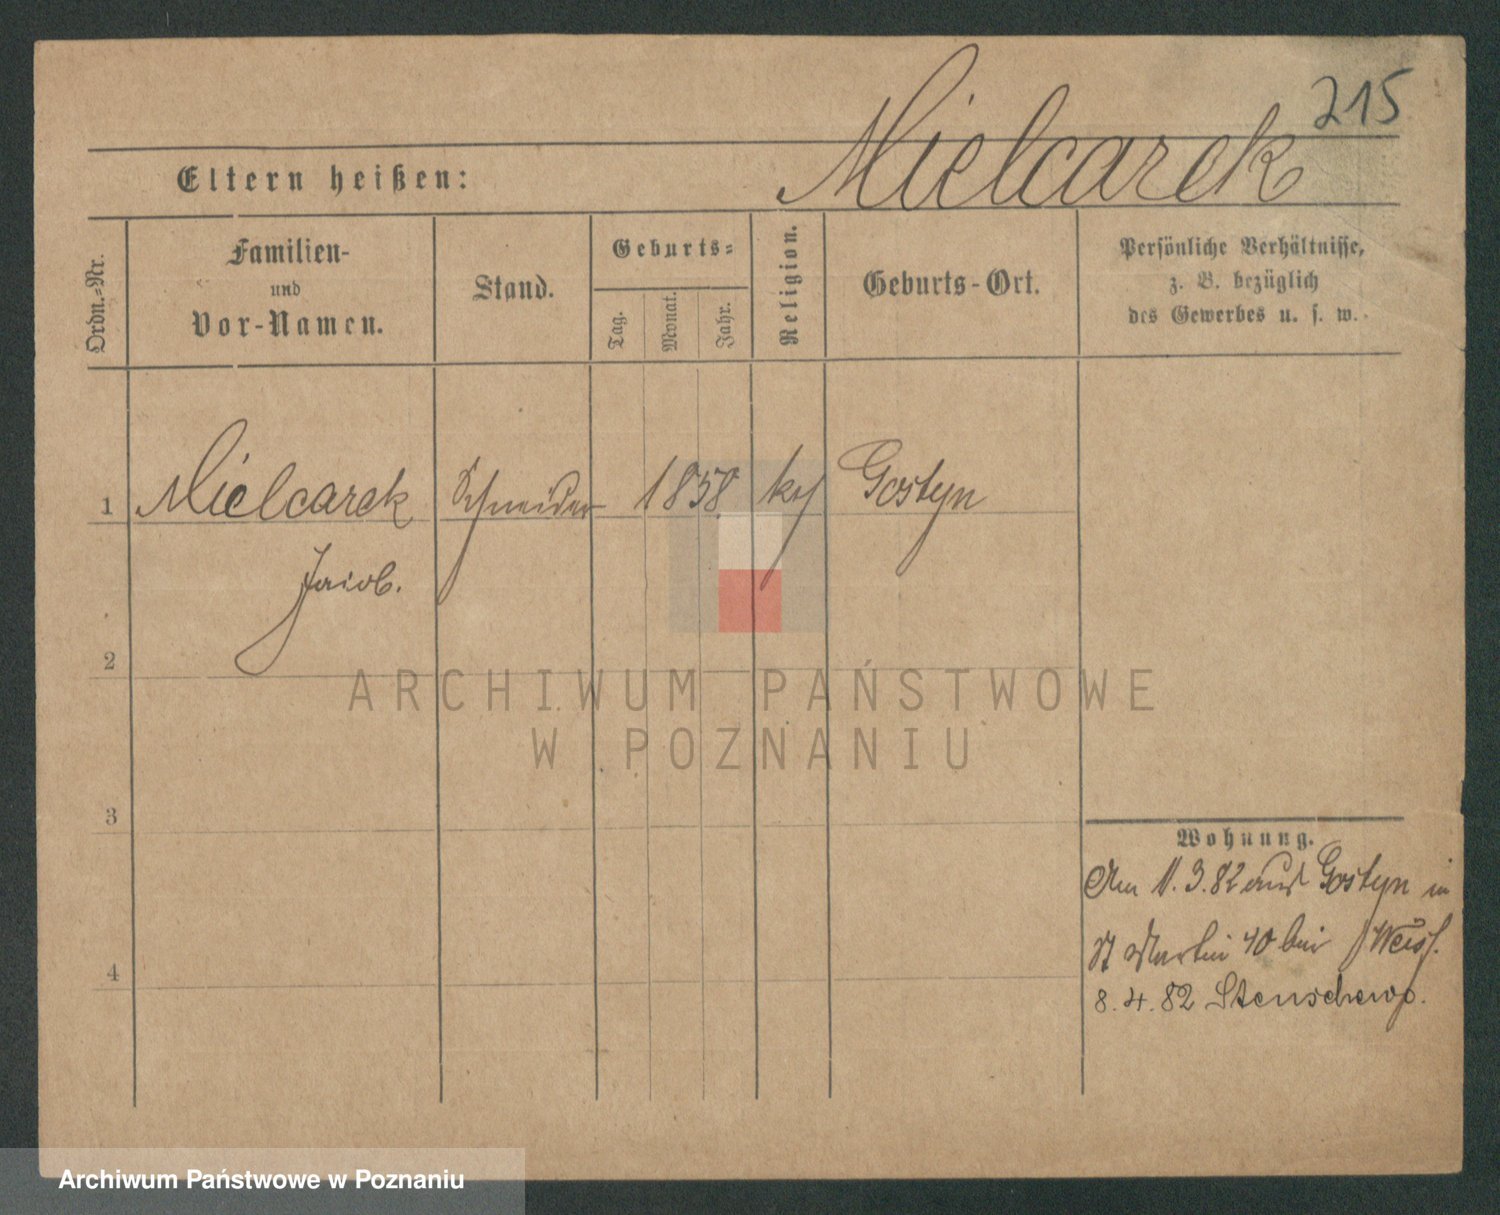 215
Mielcarek
Eltern heißen:
Ordn.-Nr.
Familien-
und
Vor-Namen.
Stand.
Geburts-
Tag.
Monat.
Jahr.
Religion.
Geburts-Ort.
Persönliche Verhältnisse,
z. B. bezüglich
des Gewerbes u. s. w.
1 Mielcarek Schneider 1858 Gostyn
Jacob.
2
3
4
Wohnung.
Am 11.3.82 aus Gostyn in
St Martin 40 bei Weiss.
8.4.82 Stenschewo.
ARCHIWUM PAŃSTWOWE
W POZNANIU
Archiwum Państwowe w Poznaniu